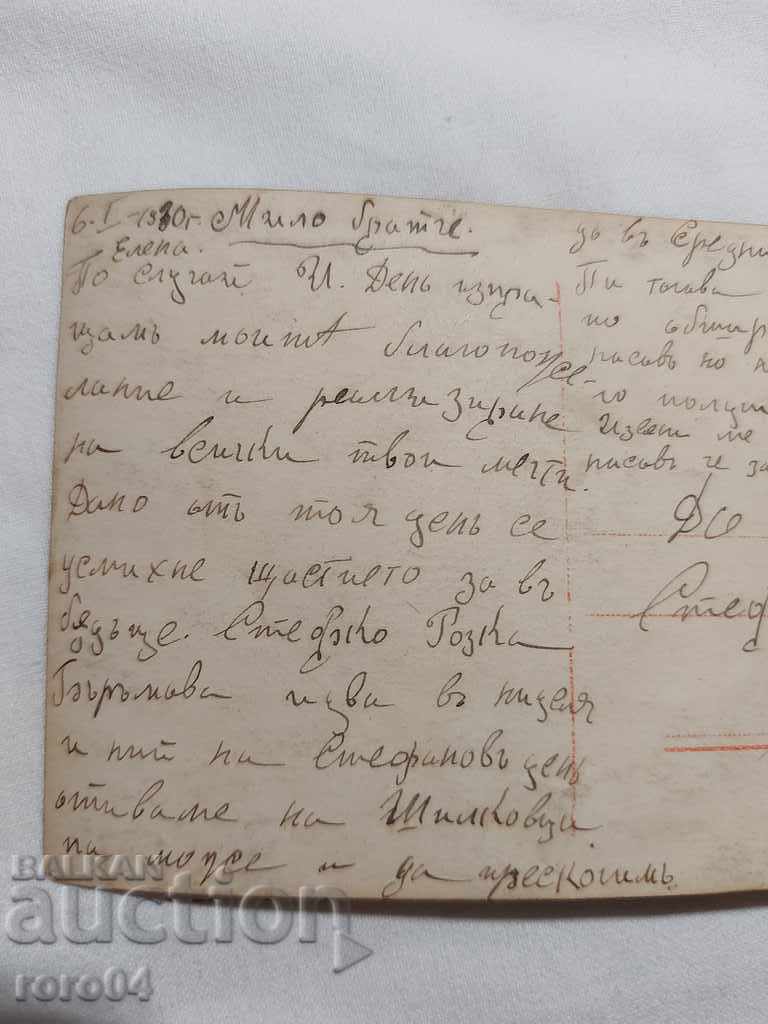 6.I-1930г. Мило братче.
Елена.
По случай И. День изпра-
щамъ моитѣ благопоже-
лание и реализиране
на всички твои мечти.
Дано отъ тоя день се
усмихне щастието за въ
бѫдъще. Стефко Розка
Бърѫмова идва въ ниделя
и ний на Стефановъ день
отиваме на Шилковци
па може и да прескочимъ
да въ Средни
Пи тогава
по обшир
писавъ но н
го получ
Извест ме
писавъ че за
До
Стеф
BALKAN
auction
roro04